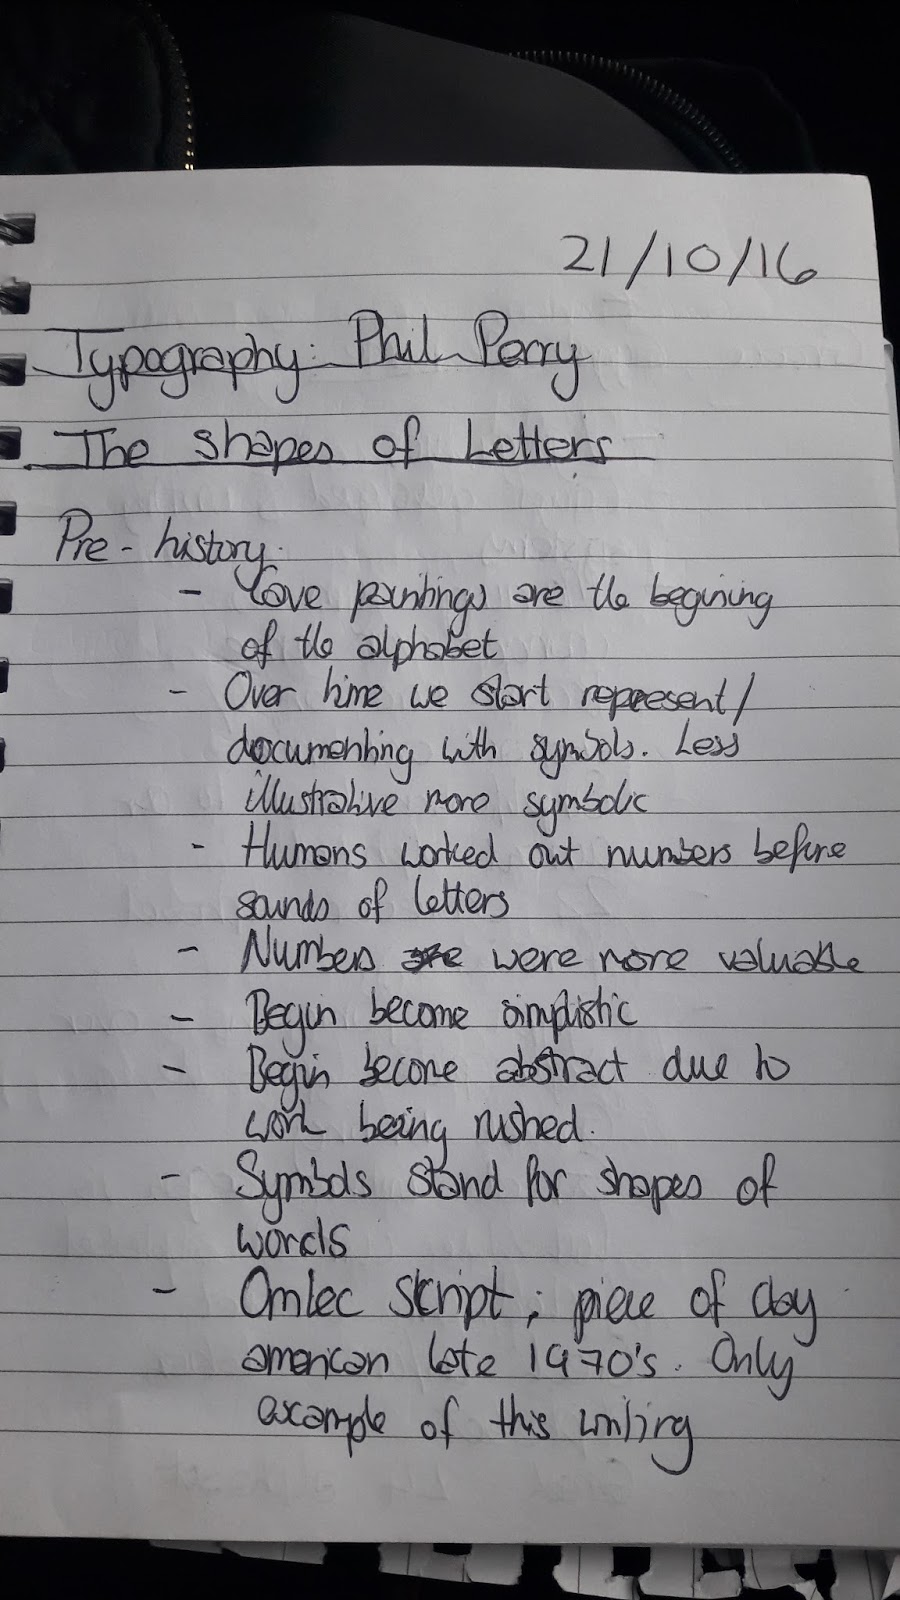 21/10/16
Typography: Phil Perry
The shapes of Letters
Pre-history.
- Cave paintings are the begining
of the alphabet
- Over time we start represent/
documenting with symbols. Less
illustrative more symbolic
- Humans worked out numbers before
sounds of letters
- Numbers were more valuable
- Begin become simplistic
- Begin become abstract due to
work being rushed.
- Symbols stand for shapes of
words
- Omlec Script; piece of clay
american late 1970's. Only
example of this writing